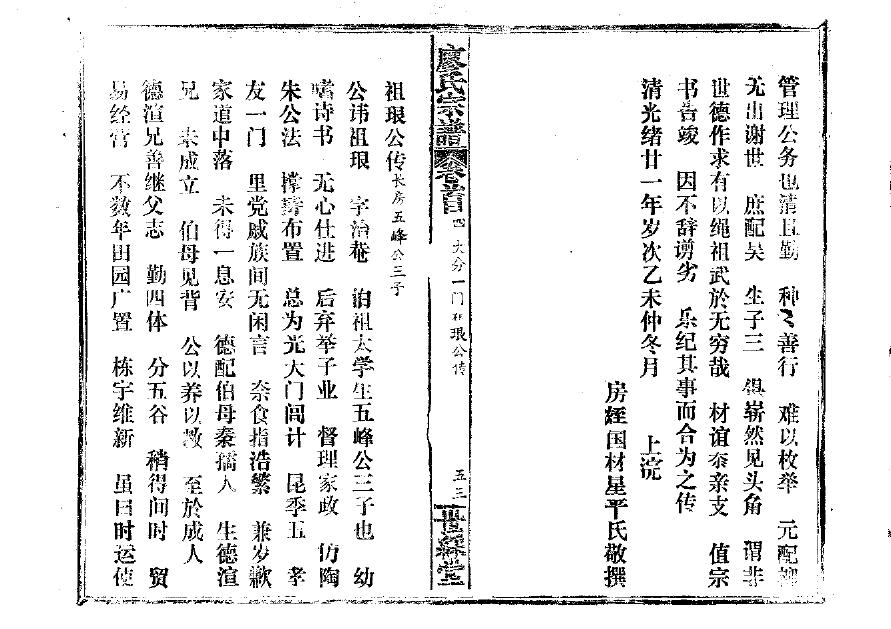 管理公务也清且勤 种々善行 难以枚举 元配
无出谢世 庶配吴 生子三 俱崭然见头角 谓非
世德作求有以绳祖武於无穷哉 材谊忝亲支 值宗
书告竣 因不辞谫劣 乐纪其事而合为之传
清光绪廿一年岁次乙未仲冬月 上浣
房侄国材星平氏敬撰
廖氏宗谱 卷首 四 大分一门祖琅公传 五三 世䌽堂
祖琅公传长房五峰公三子
公讳祖琅 字治菴 泊祖太学生五峰公三子也 幼
嗜诗书 无心仕进 后弃举子业 督理家政 仿陶
朱公法 撑持布置 总为光大门闾计 昆季五 孝
友一门 里党戚族间无闲言 奈食指浩繁 兼岁歉
家道中落 未得一息安 德配伯母秦孺人 生德渲
兄 未成立 伯母见背 公以养以教 至於成人
德渲兄善继父志 勤四体 分五谷 稍得间时 贸
易经营 不数年田园广置 栋宇维新 虽曰时运使